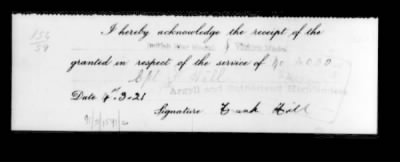 156
59
I hereby acknowledge the receipt of the
British War Medal & Victory Medal
granted in respect of the service of
Hill
Argyll and Sutherland Highlanders
Date 4 . 3 . 21
Signature Frank Hill